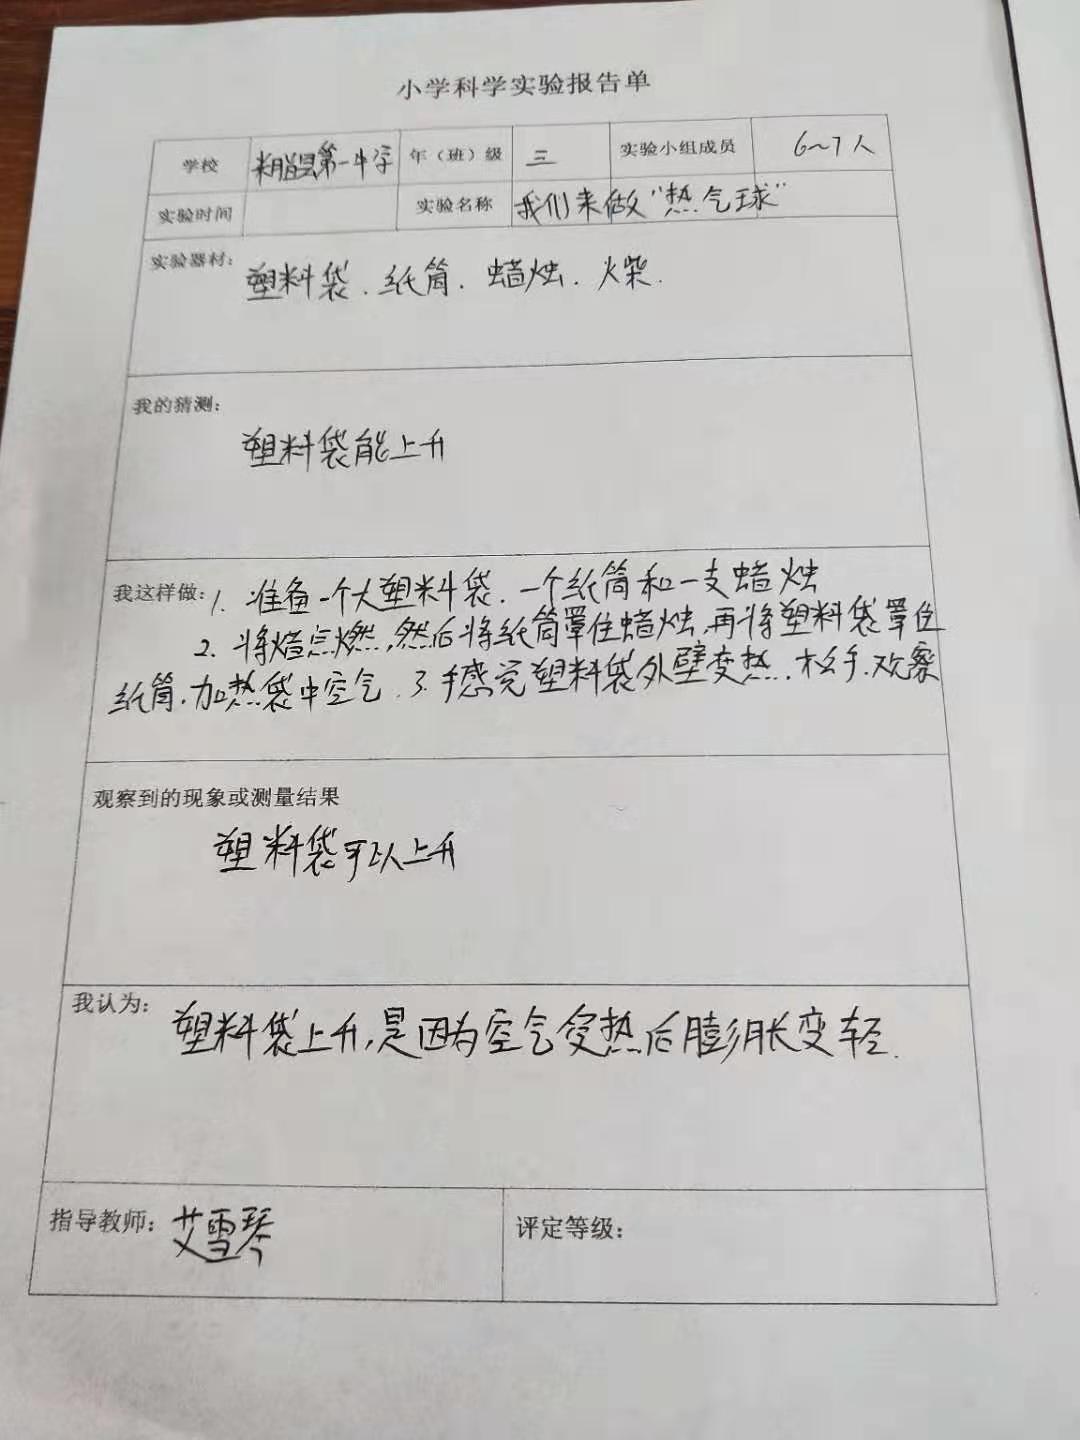 小学科学实验报告单
学校 米脂县第一小学 年（班）级 三 实验小组成员 6~7人
实验时间 实验名称 我们来做"热气球"
实验器材： 塑料袋、纸筒、蜡烛、火柴.
我的猜测：
塑料袋能上升
我这样做： 1. 准备一个大塑料袋、一个纸筒和一支蜡烛
2. 将蜡点燃,然后将纸筒罩住蜡烛,再将塑料袋罩住
纸筒、加热袋中空气. 3. 手感觉塑料袋外壁变热.松手.观察
观察到的现象或测量结果
塑料袋可以上升
我认为： 塑料袋上升,是因为空气受热后膨胀变轻.
指导教师： 艾雪琴 评定等级：